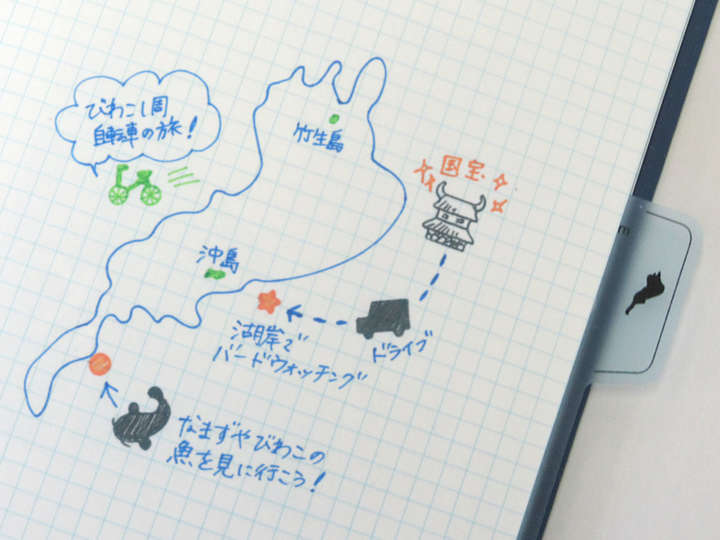 びわこ1周
自転車の旅!
竹生島
国宝
沖島
湖岸で
バードウォッチング
ドライブ
なまずやびわこの
魚を見に行こう!
m